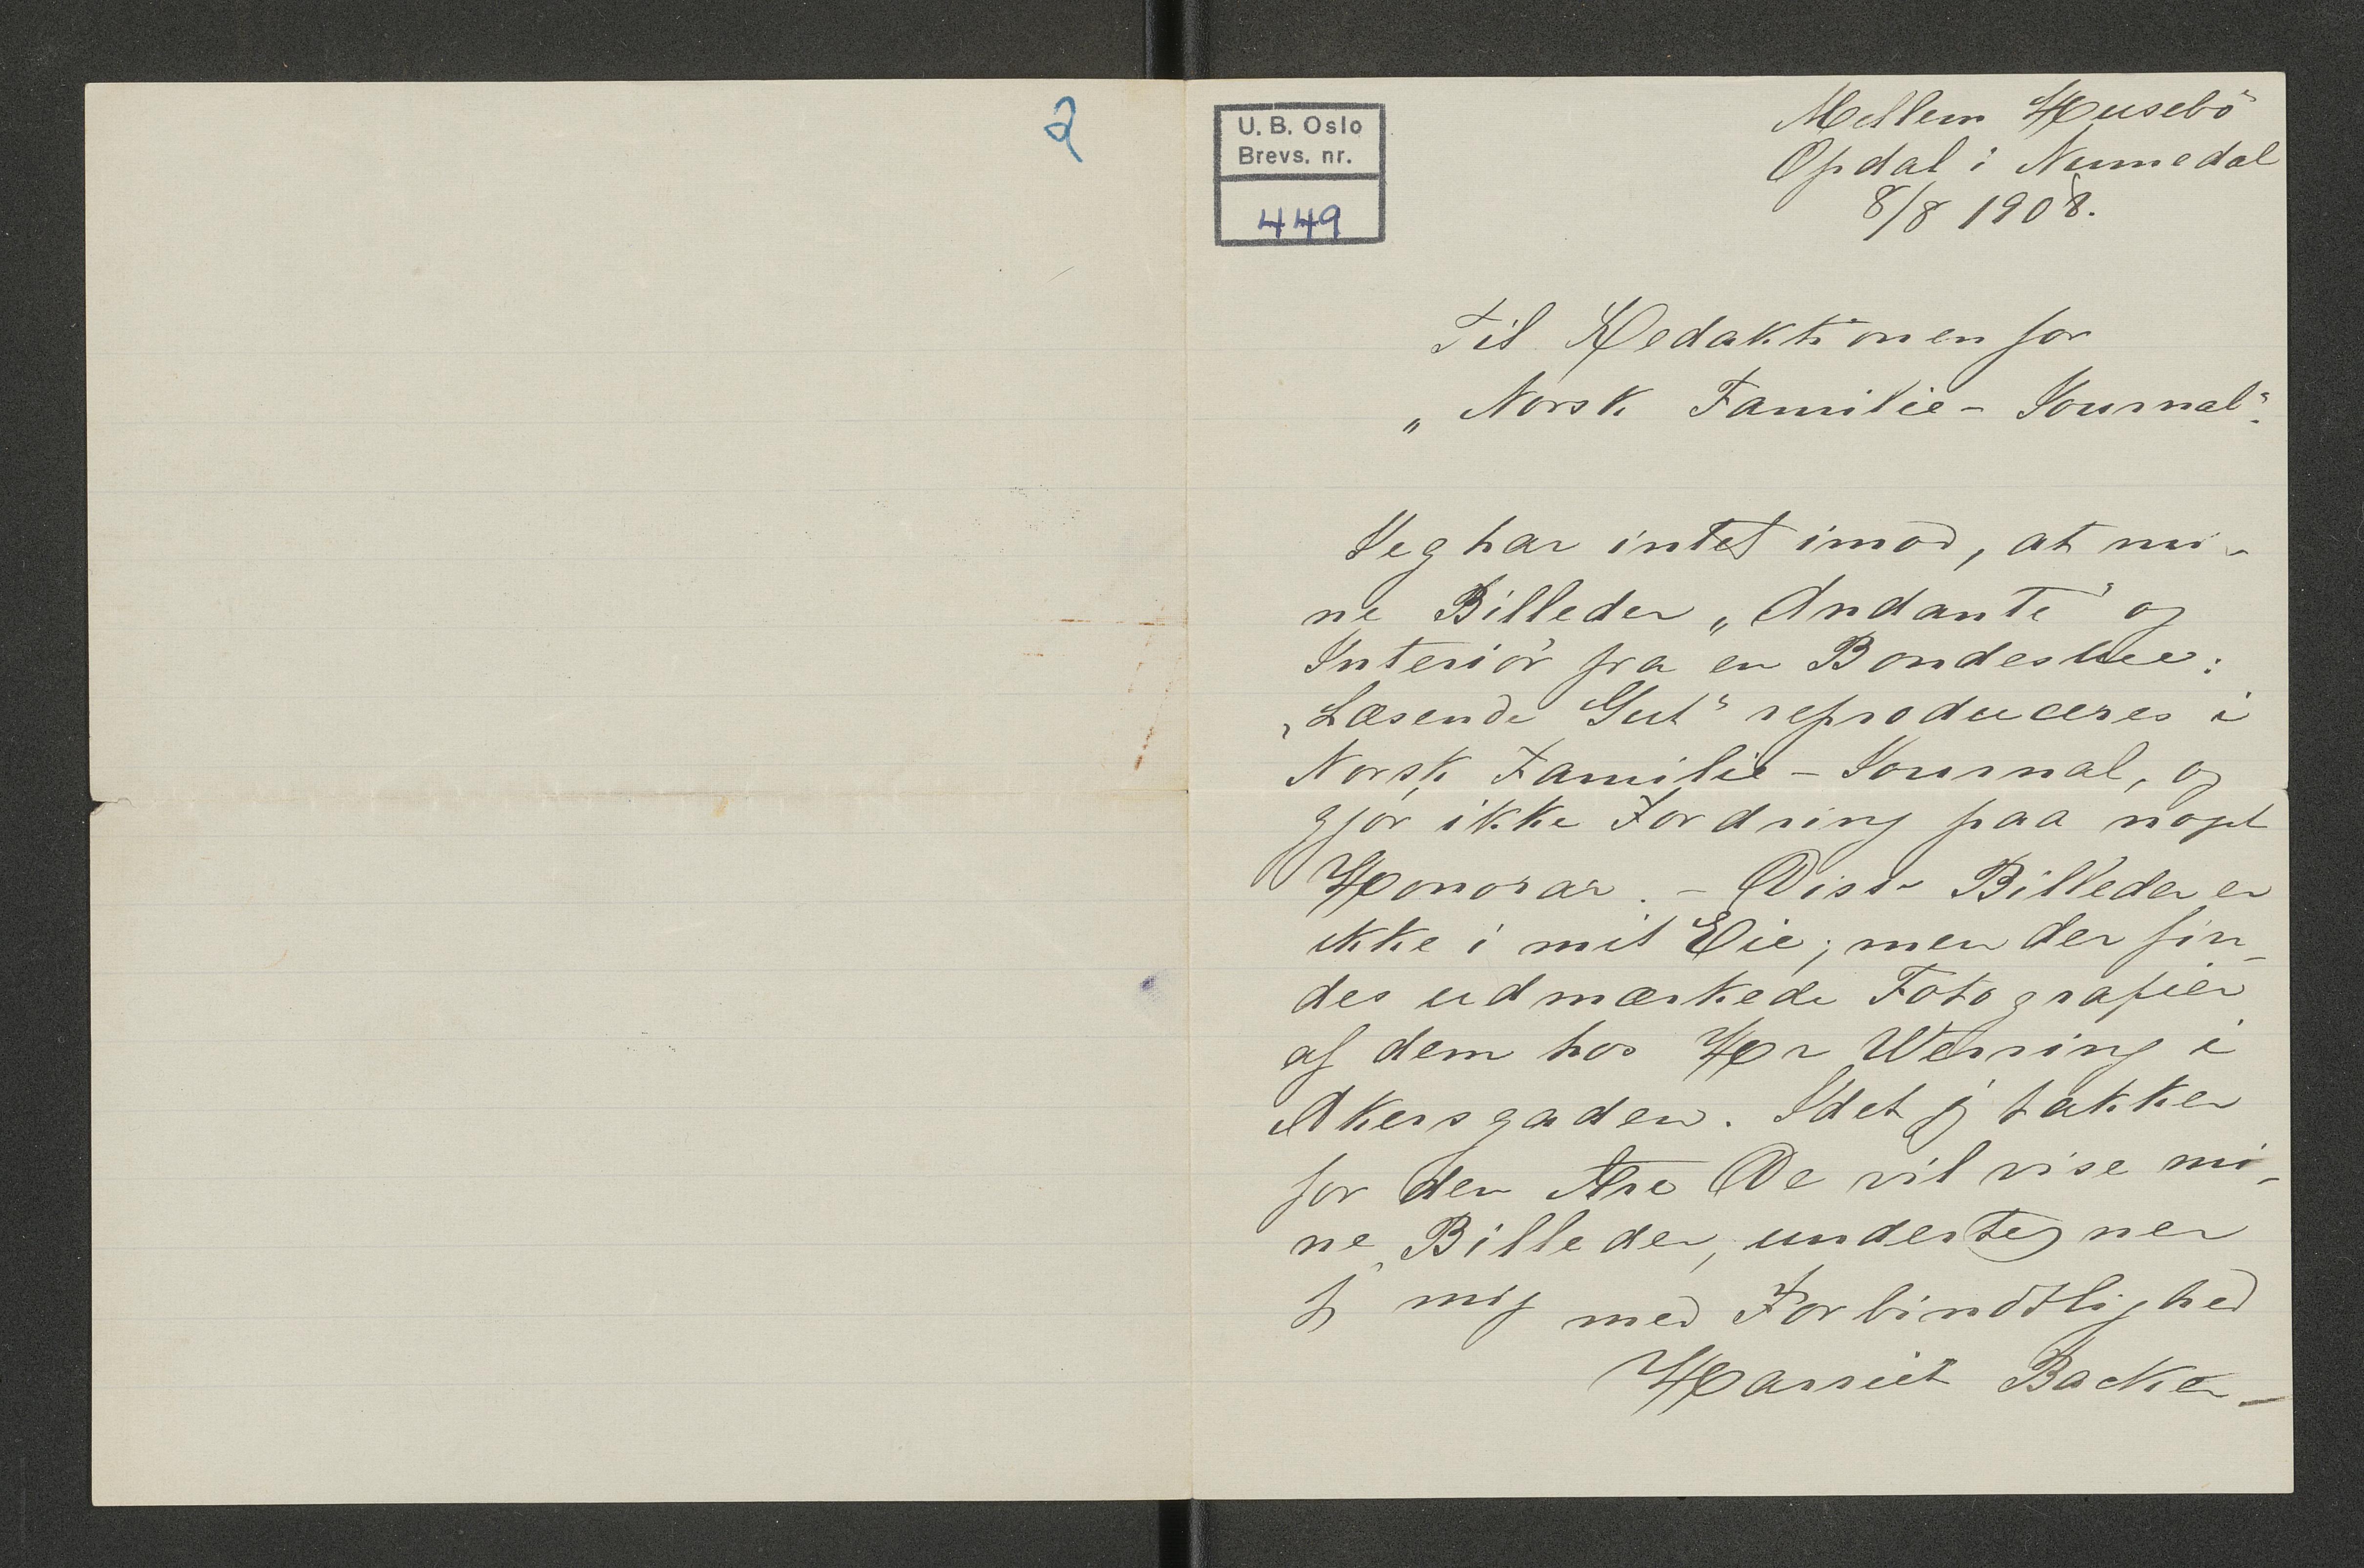 2
U. B. Oslo
Brevs. nr.
449
Mellem Husebö
Opdal i Numedal
8/8 1908.
Til Redaktionen for
„Norsk Familie-Journal“.
Jeg har intet imod, at mi-
ne Billeder „Andante“ og
Interiör fra en Bondestue:
„Læsende Gut“ reproduceres i
Norsk Familie-Journal, og
gjör ikke Fordring paa noget
Honorar. – Disse Billeder er
ikke i mit Eie; men der fin-
des udmærkede Fotografier
af dem hos Hr Werring i
Akersgaden. Idet jg takker
for den Ære De vil vise mi-
ne Billeder, undertegner
jg mig med Forbindtlighed
Harriet Backer –